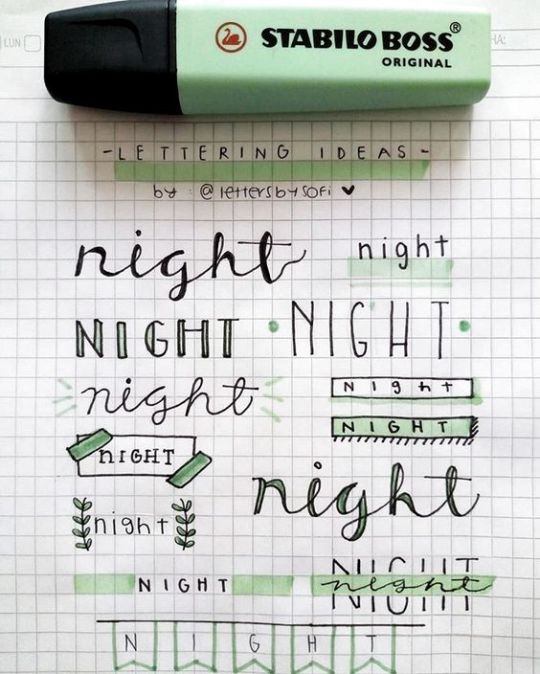 STABILO BOSS®
ORIGINAL
LUN
HA:
-LETTERING IDEAS-
by: @lettersbysofi ♥
night
night
NIGHT
NIGHT
night
Night
NIGHT
nIGHT
night
night
NIGHT
NIGHT
night
NIGHT